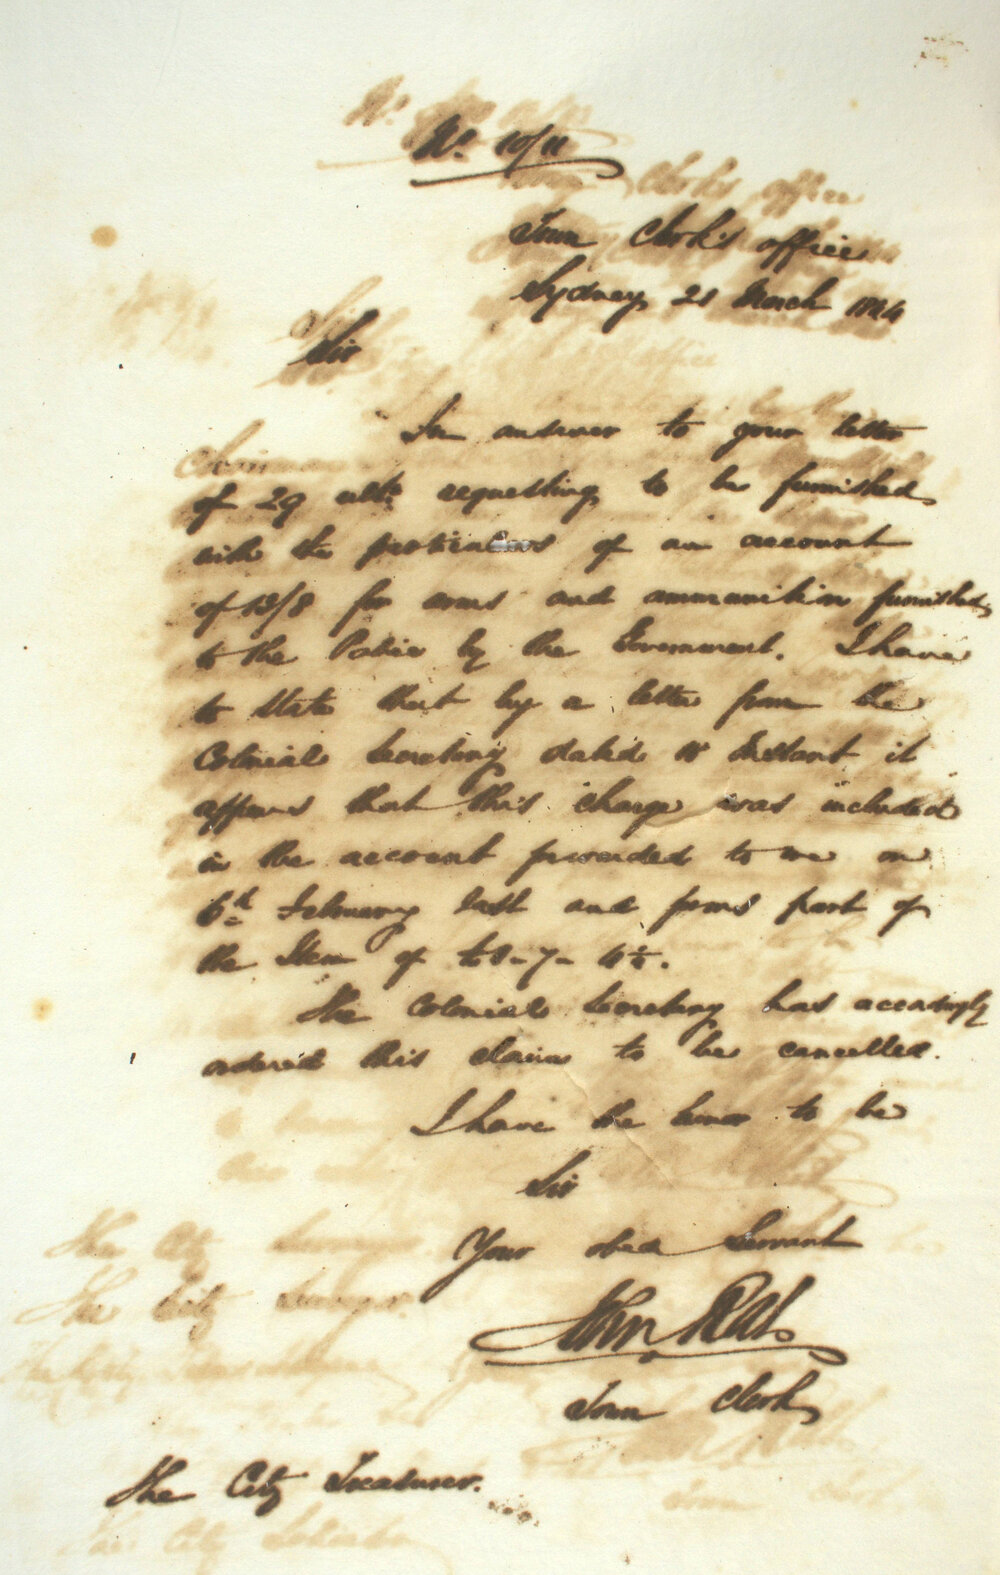 No. 10/11
Town Clerk's office
Sydney 21 March 1844
Sir
In answer to your letter
of 29 ulto. requesting to be furnished
with the particulars of an account
of 13/8 for arms and ammunition furnished
to the Police by the Government. I have
to state that by a letter from the
Colonial Secretary dated instant it
appears that this charge was included
in the account forwarded to me on
6th February last and forms part of
the Item of
The Colonial Secretary has accordingly
ordered this claim to be cancelled.
I have the honor to be
Sir
Your obed Servant
John
Town Clerk
The City Treasurer.